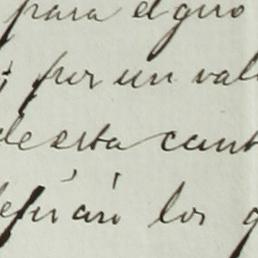 para el giro
por un val
de esta cant
los